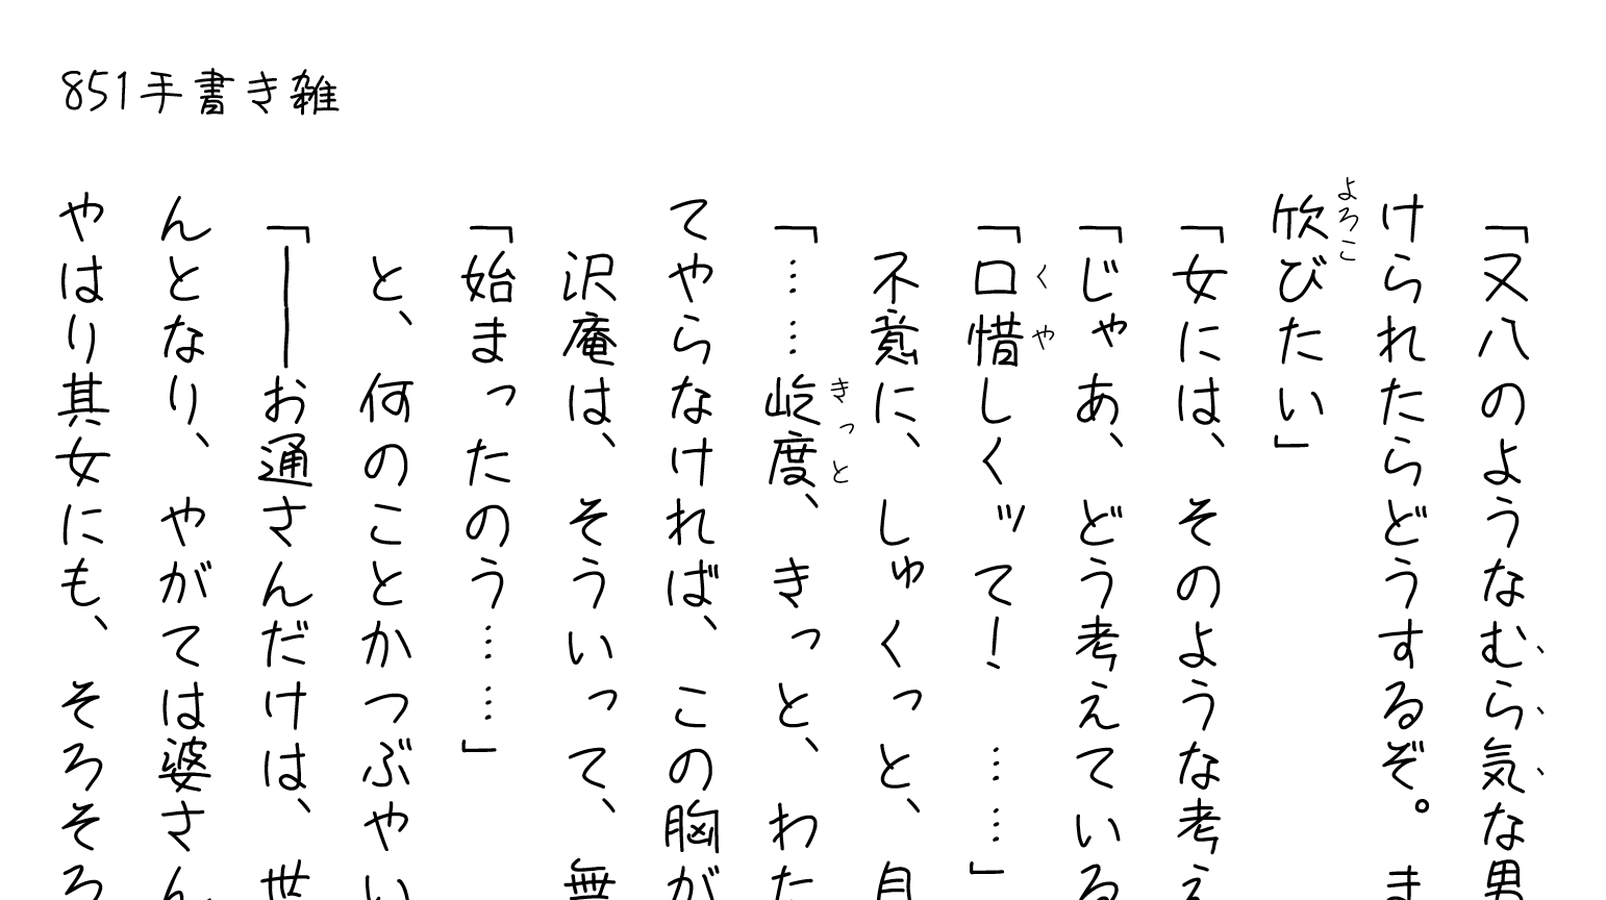 851手書き雑
「又八のようなむら気な男
けられたらどうするぞ。 ま
欣びたい」
よろこ
「女には、そのような考え
「じゃあ、どう考えている
「口惜しくッて! ……」
くや
不意に、しゅくっと、自
「……屹度、きっと、わた
きっと
てやらなければ、この胸が
沢庵は、そういって、無
「始まったのう……」
と、何のことかつぶやい
「――お通さんだけは、世
んとなり、やがては婆さん
やはり其女にも、そろそろ